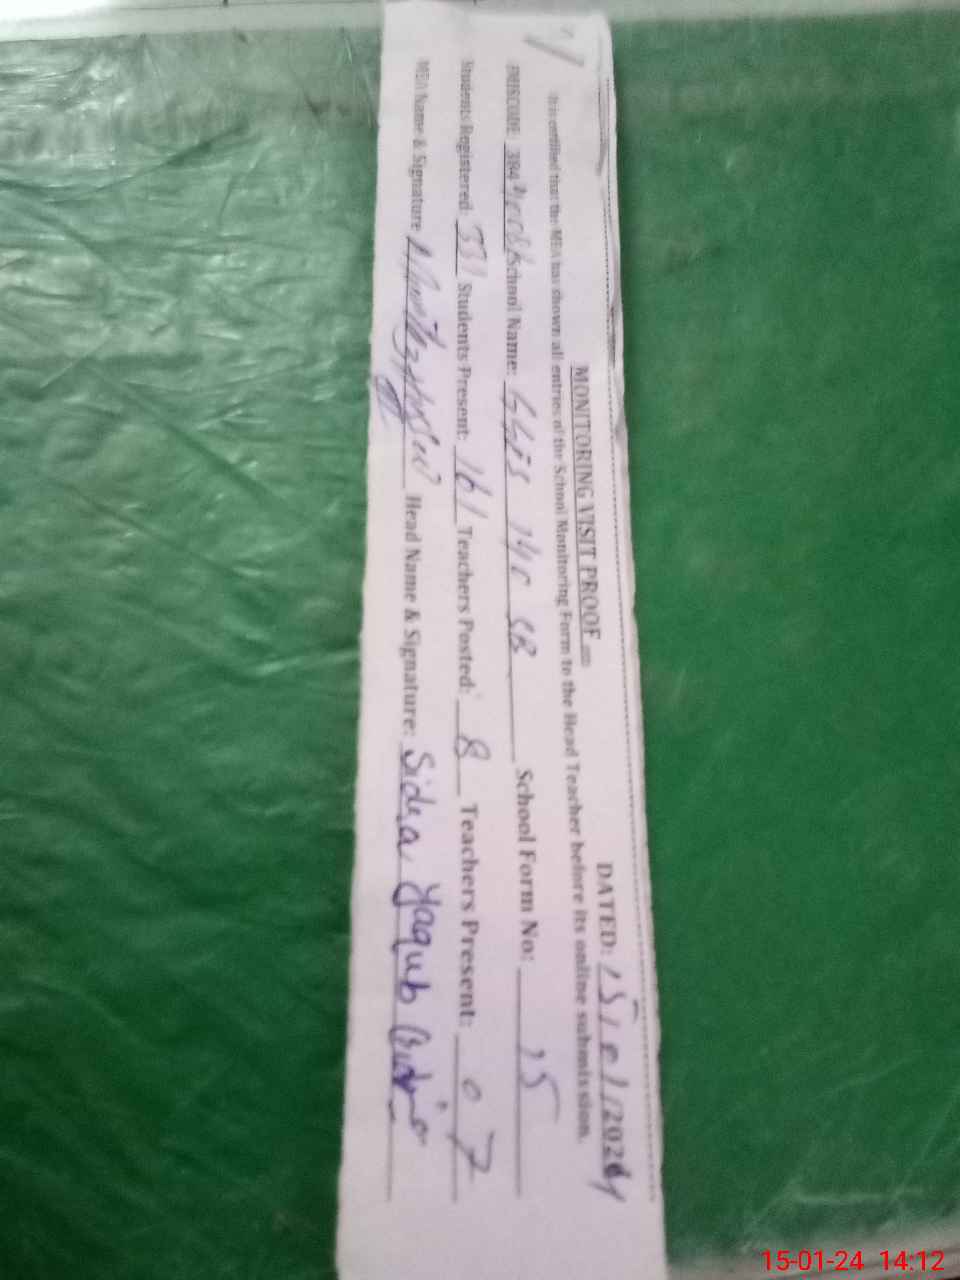 MONITORING VISIT PROOF
DATED: 15/01/2024
It is certified that the MEA has shown all entries of the School Monitoring Form to the Head Teacher before its online submission.
EMISCODE: School Name: School Form No: 15
Students Registered: 331 Students Present: 161 Teachers Posted: 8 Teachers Present: 07
MEA Name & Signature Head Name & Signature: Sidra Yaqub
15-01-24 14:12